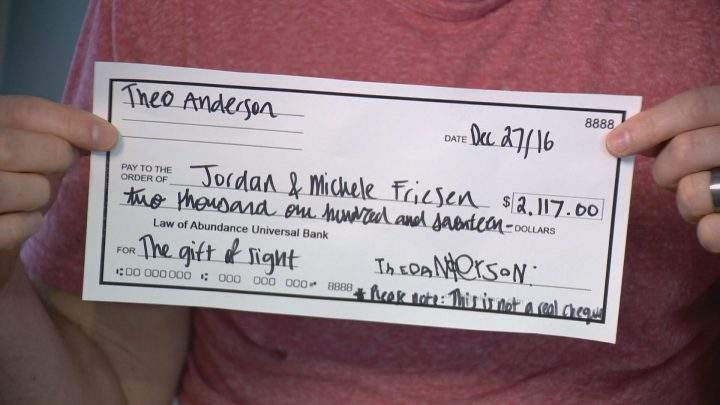 Theo Anderson
8888
DATE Dec 27/16
PAY TO THE
ORDER OF Jordan & Michele Friesen $ 2,117.00
two thousand one hundred and seventeen - DOLLARS
Law of Abundance Universal Bank
FOR The gift of sight TheoANderSON
⑆00 000000 ⑆ 000 000 000⑈ 8888
* Please note: This is not a real cheque